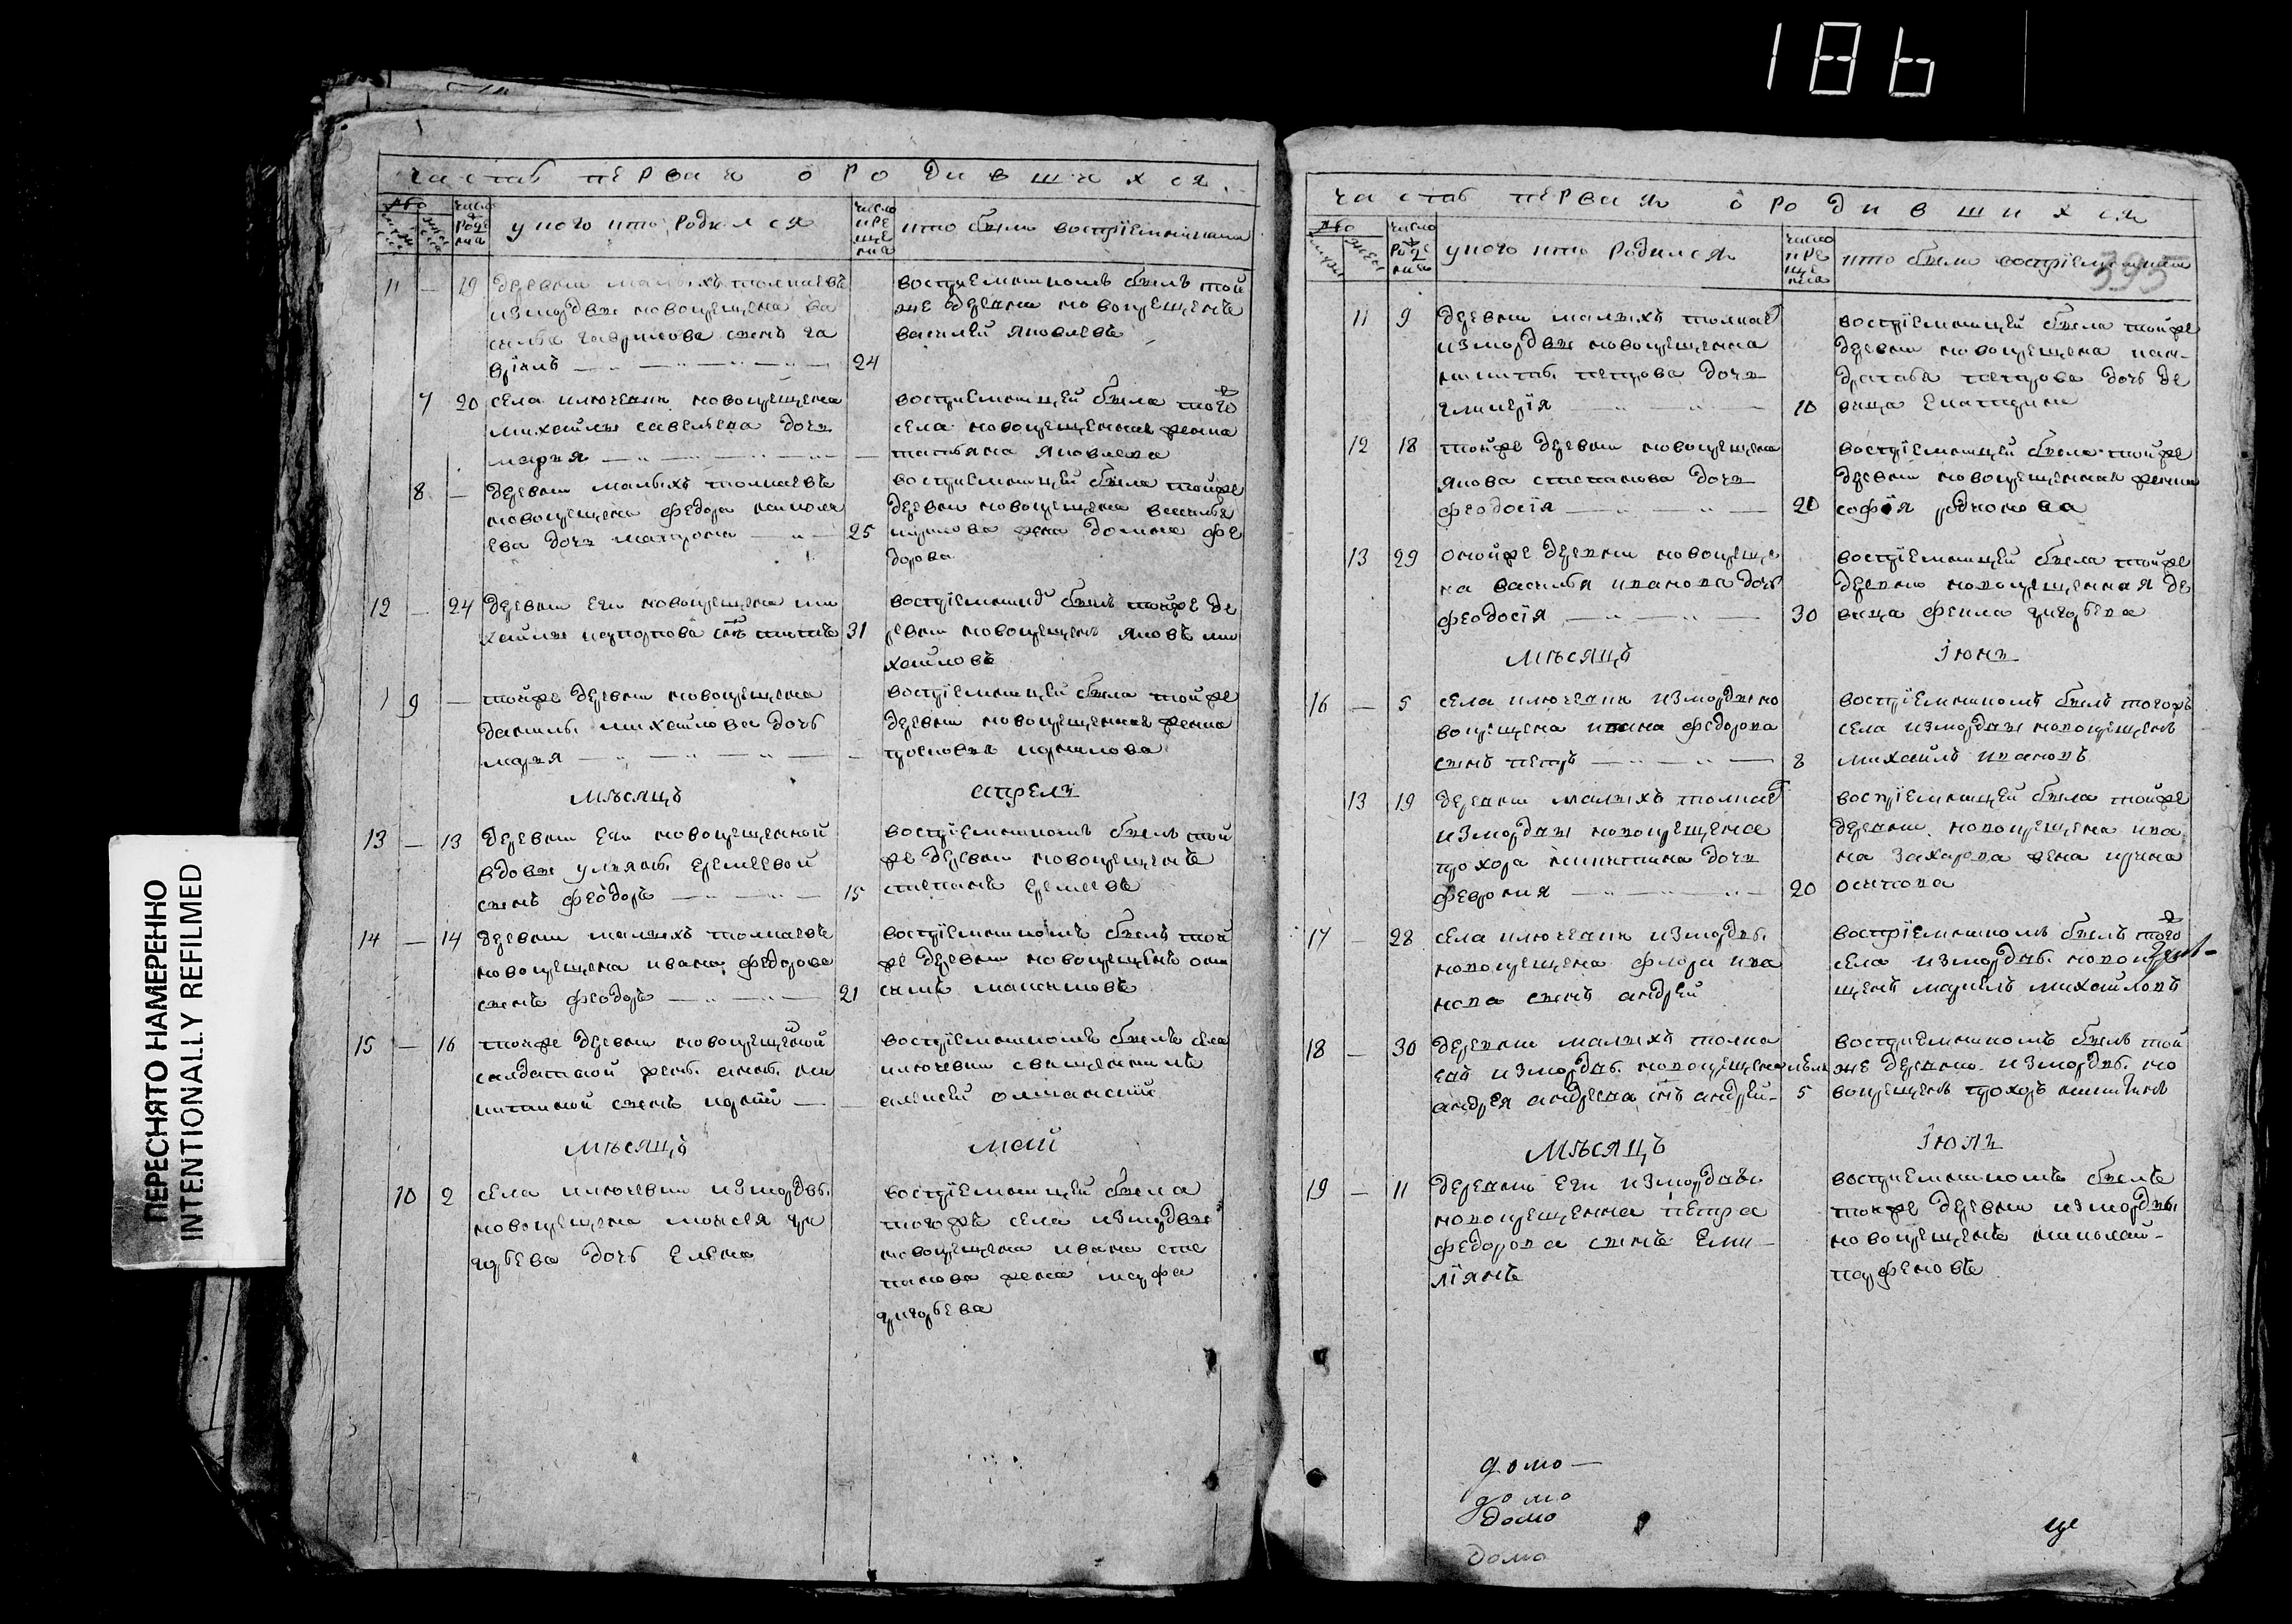 186
часть первая о родившихся
число рождения
у кого кто родился
число крещения
кто были восприемники
11 — 19 деревни малыхъ толкаевъ
измордвы новокрещена ва
силья гаврилова сынъ га
вріилъ 24
восприемникомъ былъ той
же деревни новокрещенъ
василей яковлевъ
7 20 села ключевки новокрещена
михайлы савельева дочь
марья —
восприемницей была того
села новокрещенная женка
татьяна яковлева
8 — деревни малыхъ толкаевъ
новокрещена федора николаева дочь матрона 25
восприемницей была тойже
деревни новокрещена василья
жена домна фе
дорова
12 — 24 деревни еги новокрещена ми
хайлы сынъ 31
восприемникъ былъ тойже де
ревни новокрещенъ яковъ ми
хайловъ
9 — тойже деревни новокрещена
данилы михайлова дочь
марья —
восприемницей была тойже
деревни новокрещенная женка
МѢСЯЦЪ апрель
13 — 13 деревни еги новокрещенной
вдовы ульяны еремеевой
сынъ феодоръ 15
воспріемникомъ былъ той
же деревни новокрещенъ
степанъ еремеевъ
14 — 14 деревни малыхъ толкаевъ
новокрещена ивана федорова
сынъ феодоръ 21
воспріемникомъ былъ той
же деревни новокрещенъ
максимовъ
15 — 16 тойже деревни новокрещеной
солдатской жены анны ни
китиной сынъ —
воспріемникомъ былъ села
ключевки священникъ
алексей
МѢСЯЦЪ МАЙ
10 2 села ключевки измордвы
новокрещена моисея гри
горьева дочь елена
воспріемницей была
тогожъ села измордвы
новокрещена ивана сте
панова жена марфа
григорьева
часть первая о родившихся
число рождения
у кого кто родился
число крещения
кто были воспріемники
395
11 9 деревни малыхъ толкае
измордвы новокрещенна
никиты петрова дочь
гликерія 10
воспріемницей была тойже
деревни новокрещена кон-
дратья петрова дочь де
вица екатерина
12 18 тойже деревни новокрещена
якова степанова дочь
феодосія 20
воспріемницей была тойже
деревни новокрещенная женка
софія родионова
13 29 онойже деревни новокреще
на василья иванова дочь
феодосія 30
воспріемницей была тойже
деревни новокрещенная де
вица фекла григорьева
МѢСЯЦЪ Іюнь
16 — 5 села ключевки измордвы но
вокрещена ивана федорова
сынъ петръ 8
воспріемникомъ былъ тогожъ
села измордвы новокрещенъ
михаилъ ивановъ
13 19 деревни малыхъ толкае
измордвы новокрещена
прохора никитина дочь
феврония 20
воспріемницей была тойже
деревни новокрещена ива
на захарова жена ирина
осипова
17 — 28 села ключевки измордвы
новокрещена флора ива
нова сынъ андрей
воспріемникомъ былъ того
села измордвы новокре
щенъ михайловъ
18 — 30 деревни малыхъ толка
евъ измордвы новокрещена
андрея андреева снъ андрей 5
воспріемникомъ былъ той
же деревни измордвы но
вокрещенъ прохоръ никитинъ
МѢСЯЦЪ Іюль
19 — 11 деревни еги измордвы
новокрещенна петра
федорова сынъ еми-
ліянъ
воспріемникомъ былъ
тойже деревни измордвы
новокрещенъ николай
парфеновъ
домо
домо
домо
домо
ще
ПЕРЕСНЯТО НАМЕРЕННО
INTENTIONALLY REFILMED